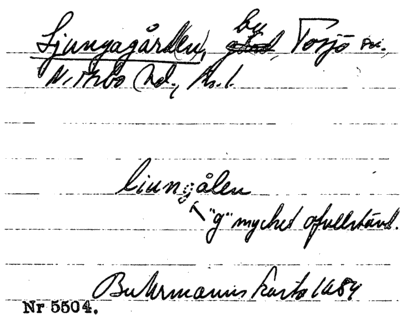 Ljungagården, by, Torsjö sn.,
N. Åsbo hd, Kr. l.
liungålen
"g" mycket ofullständ.
Buhrmanns karta 1684
Nr 5504.